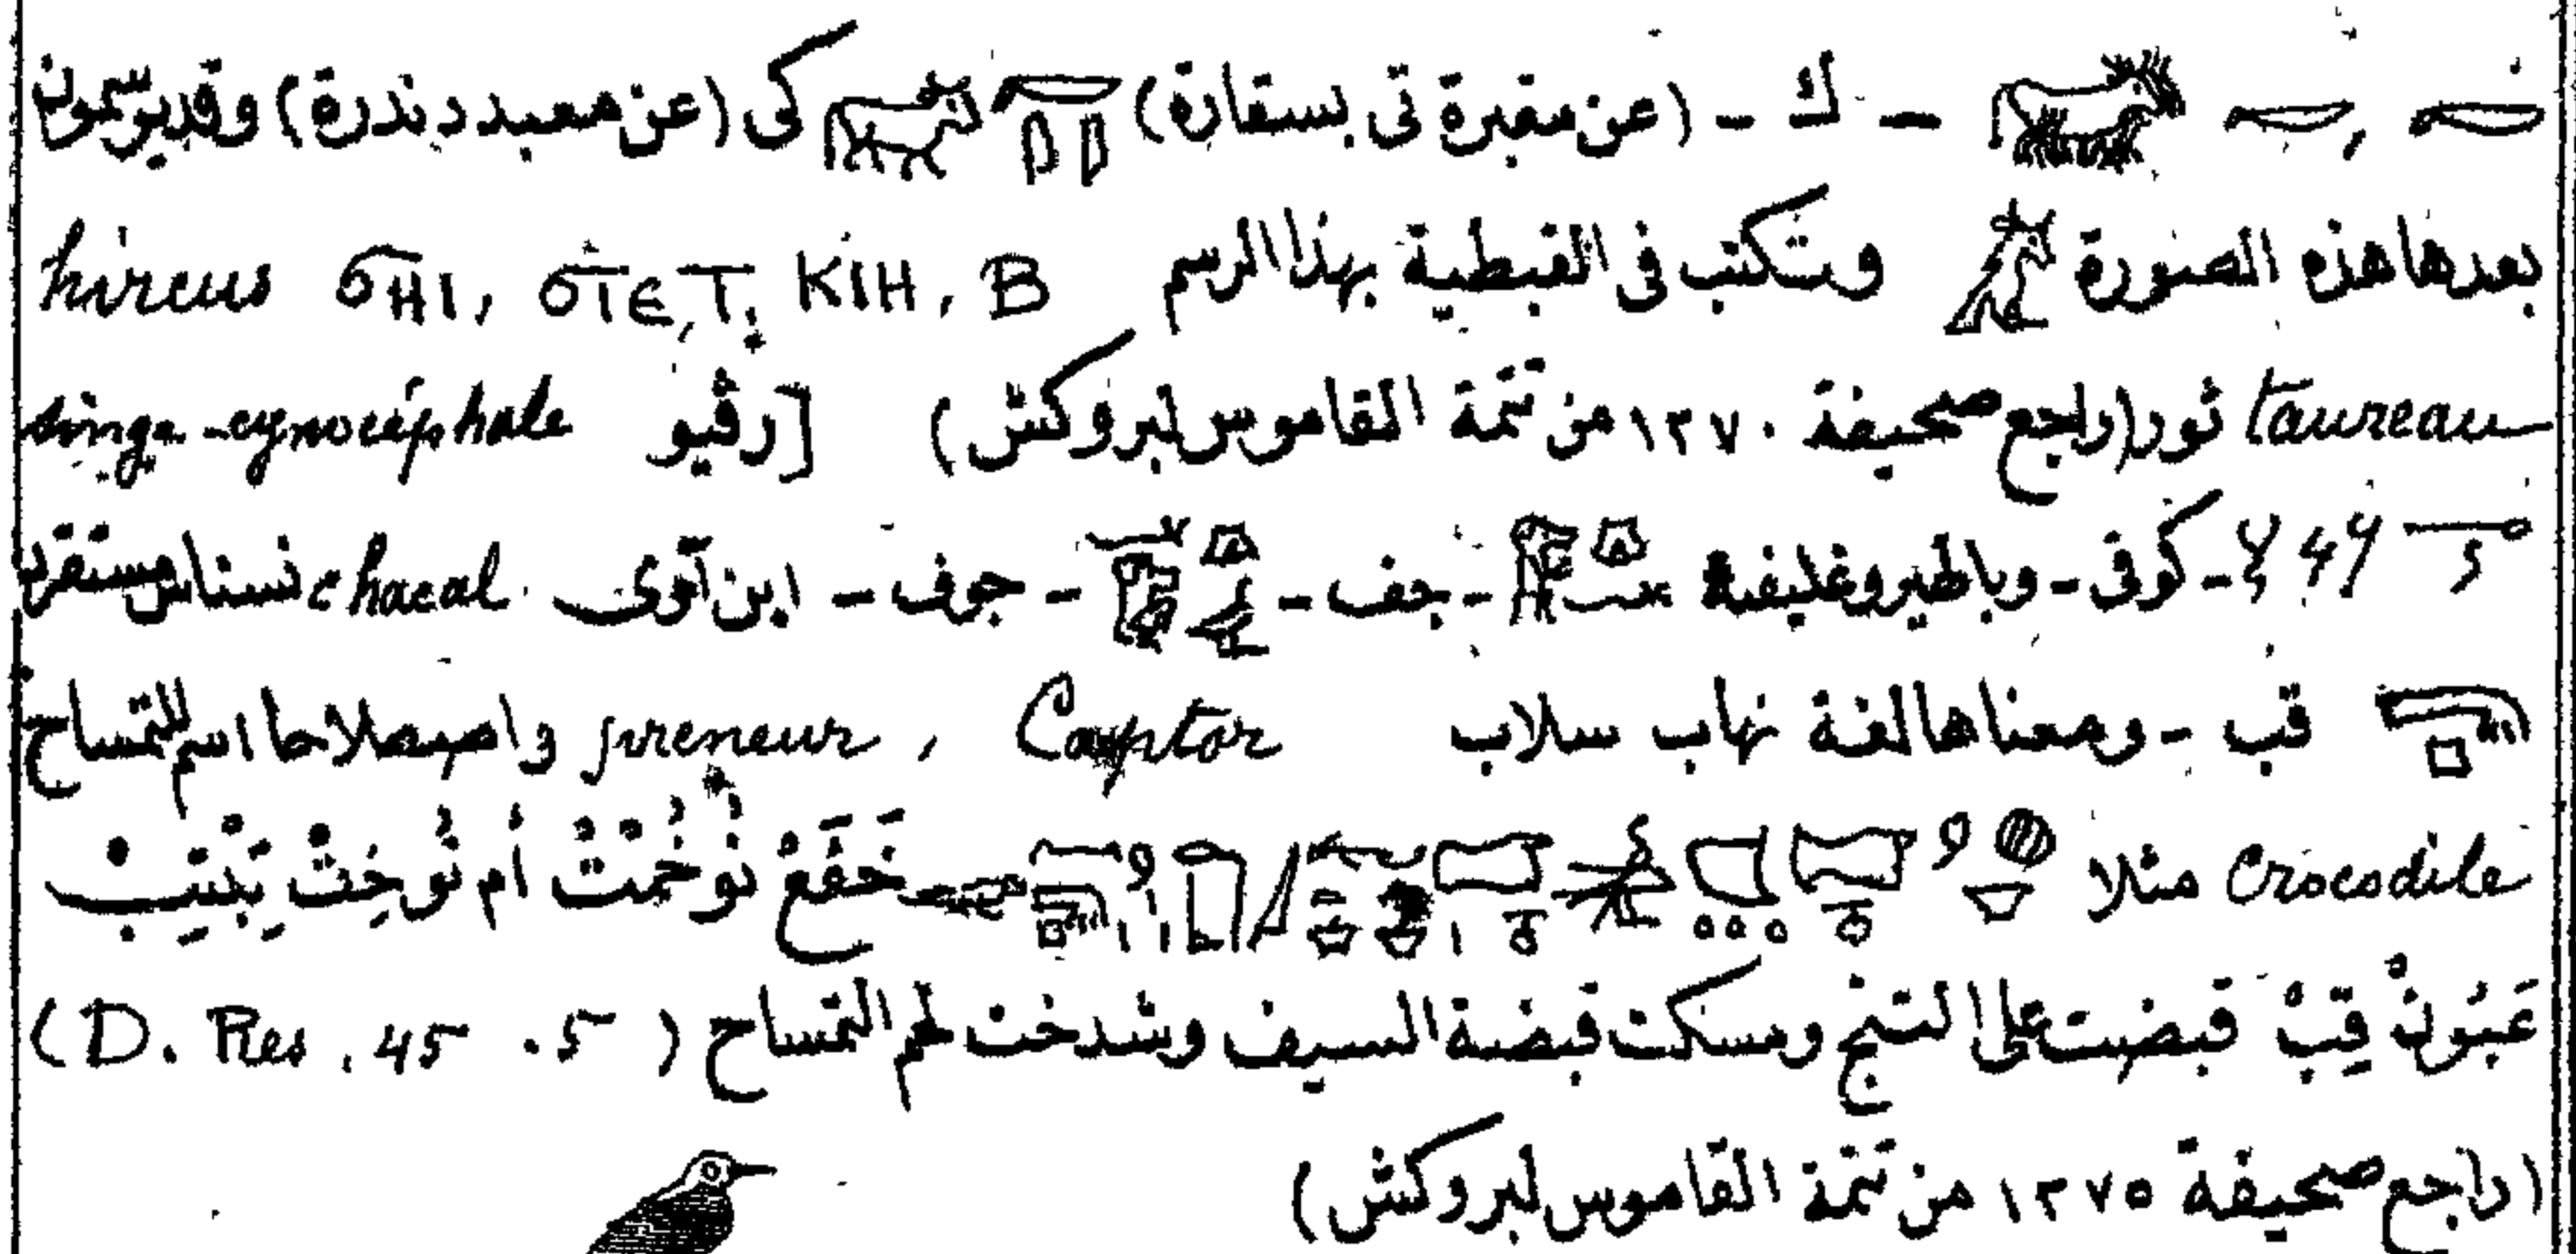 - ك - (عن مقبرة تى بسقارة) كى (عن معبد دندرة) وقد يرسمون
بعدها هذه الصورة وتكتب فى القبطية بهذا الرسم hircus ϬHI, ϬIE, T. KIH, B
taureau ثور (راجع صحيفة ١٢٧٠ من تتمة القاموس لبروكش) [رڤيو singe-cynocéphale
- كوفى - وباطيروغليفية - جف - - جوف - ابن آوى chacal نسناس مستقرد
قب - ومعناها لغة نهاب سلاب Captor , preneur واصطلاحا اسم للتمساح
crocodile مثلا خَفَعْ نُوخُمْتْ أم نُوخِتْ
قِبْ قبضت على ومسكت قبضة السيف وشدخت لحم التمساح (D. Res. 45. 5)
(راجع صحيفة ١٢٧٥ من تتمة القاموس لبروكش)